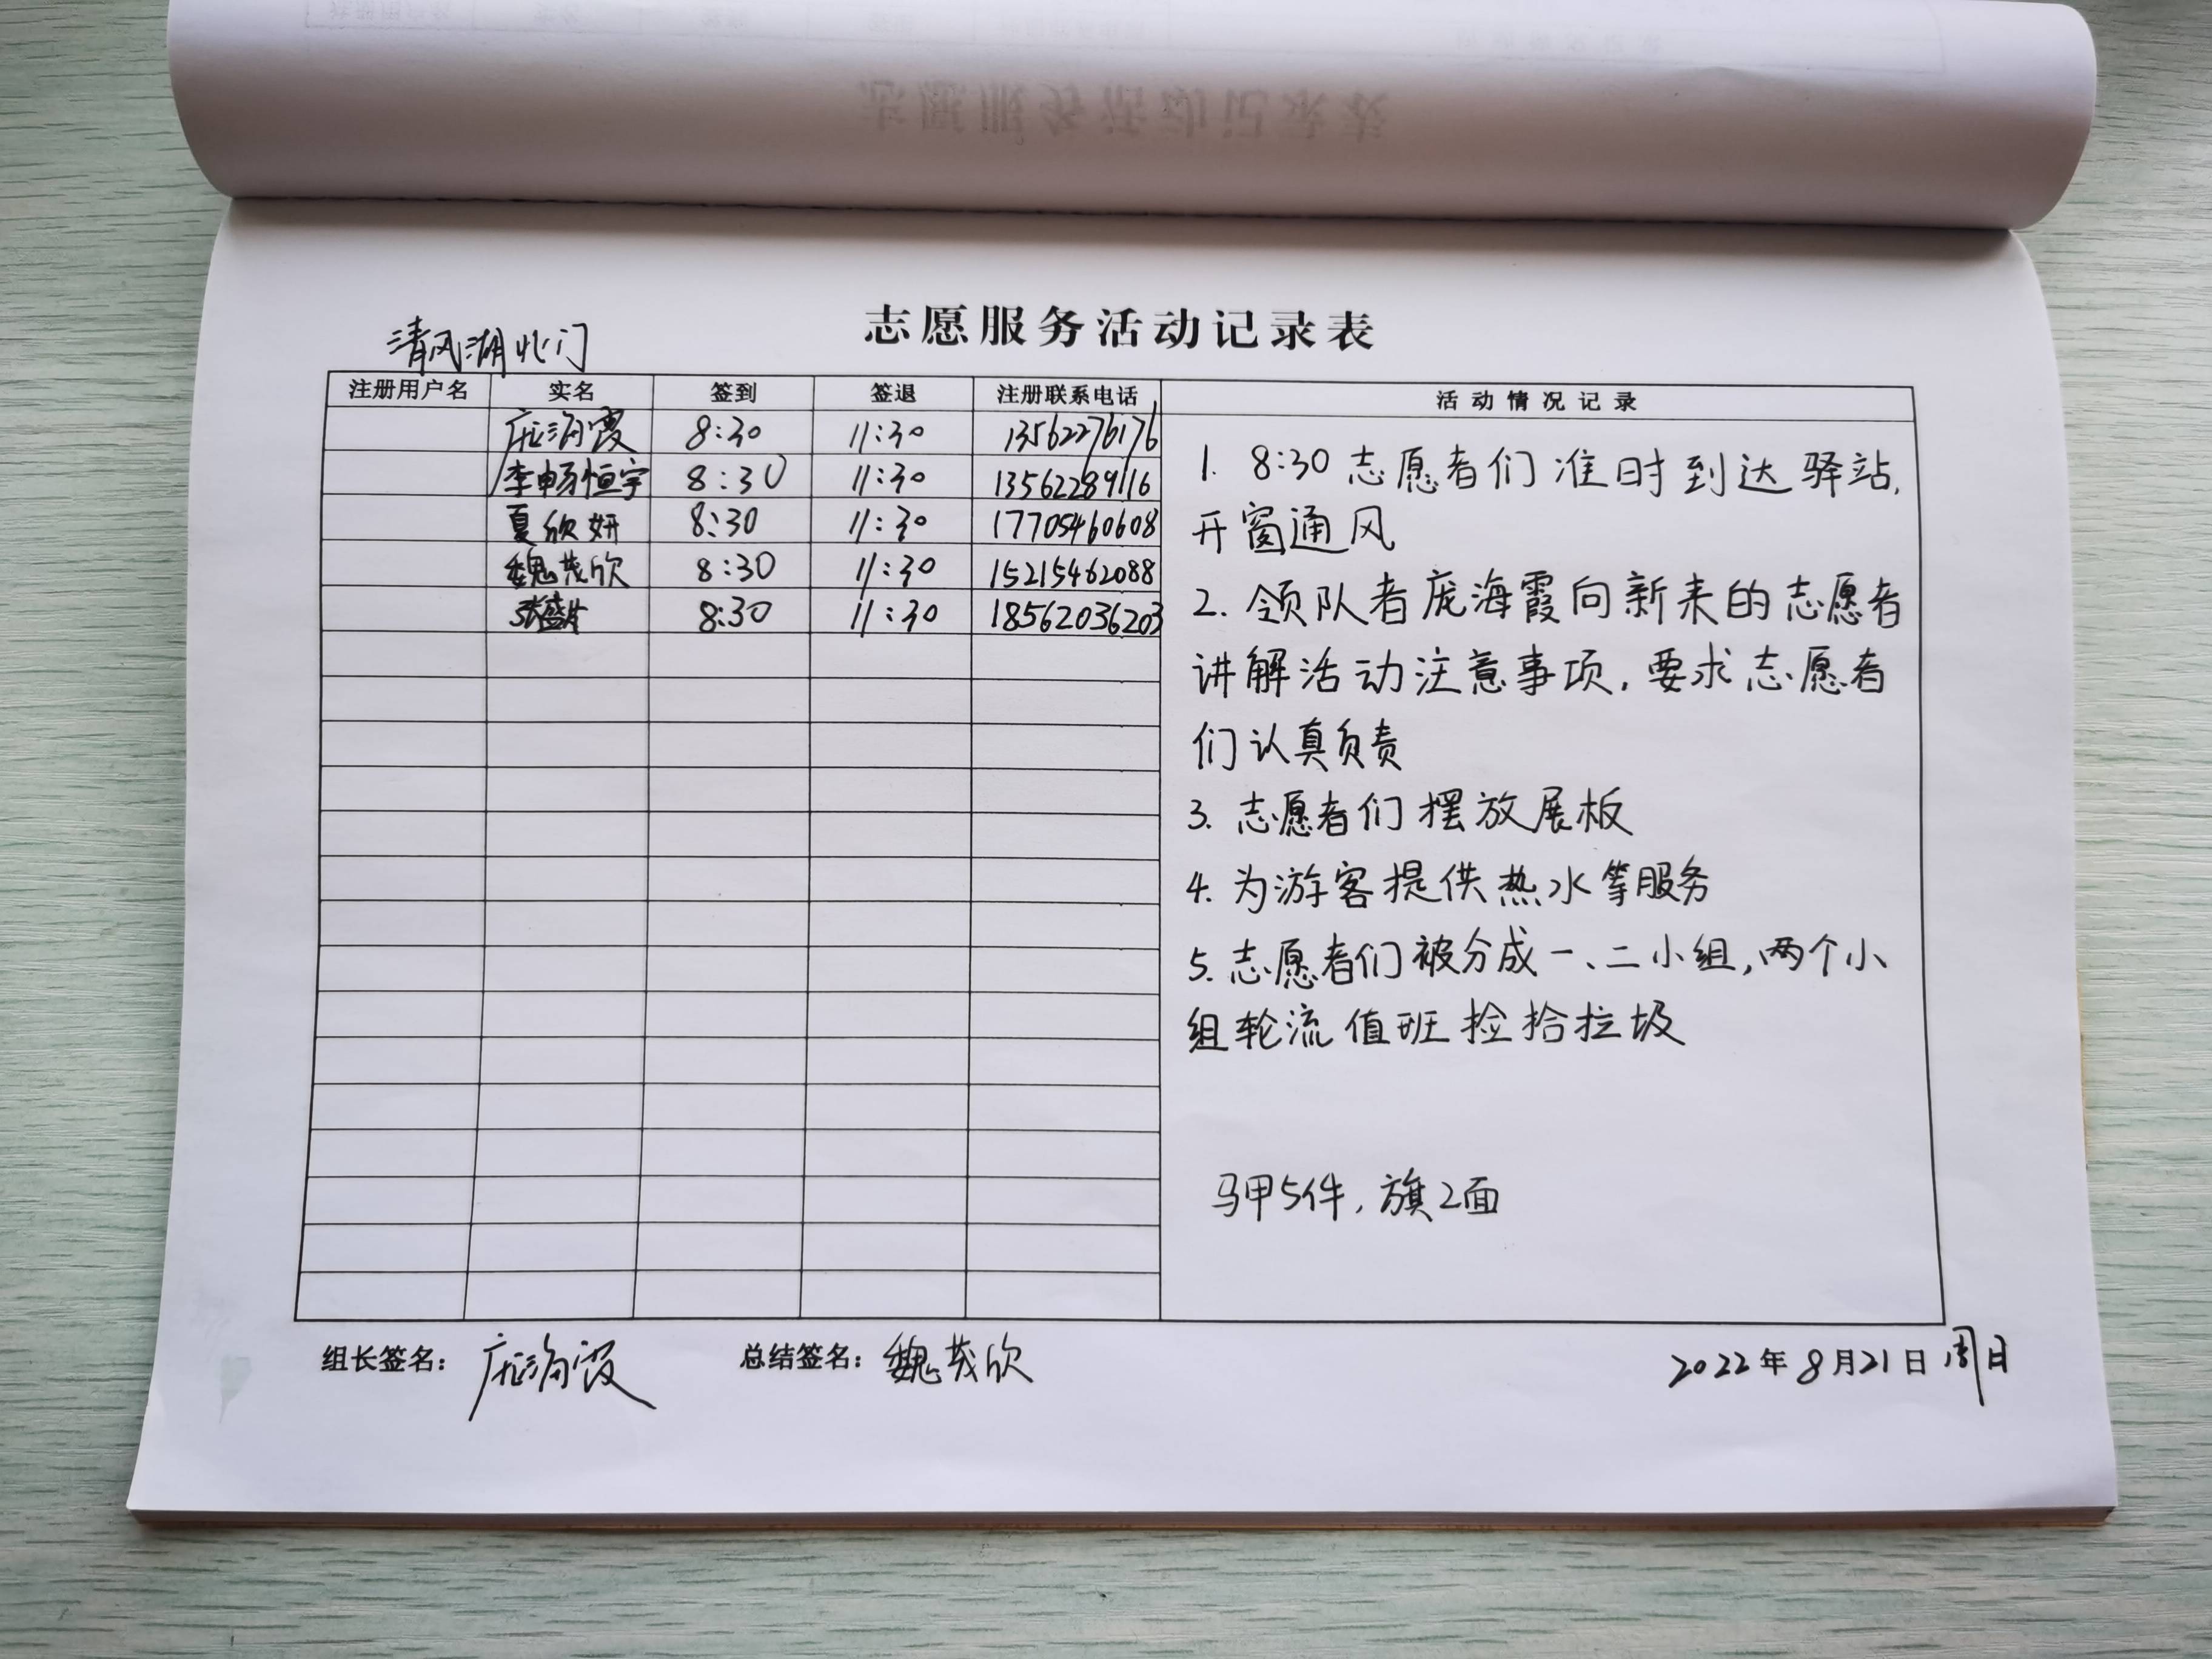 志愿服务活动记录表
清风湖北门
注册用户名 实名 签到 签退 注册联系电话 活动情况记录
庞海霞 8:30 11:30 13562276176
李畅恒宇 8:30 11:30 13562289116
夏欣妍 8:30 11:30 17705460608
魏茂欣 8:30 11:30 15215462088
张 8:30 11:30 18562036203
1. 8:30志愿者们准时到达驿站,
开窗通风
2. 领队者庞海霞向新来的志愿者
讲解活动注意事项,要求志愿者
们认真负责
3. 志愿者们摆放展板
4. 为游客提供热水等服务
5. 志愿者们被分成一、二小组,两个小
组轮流值班捡拾垃圾
马甲5件,旗2面
组长签名: 庞海霞 总结签名: 魏茂欣 2022年8月21日 周日